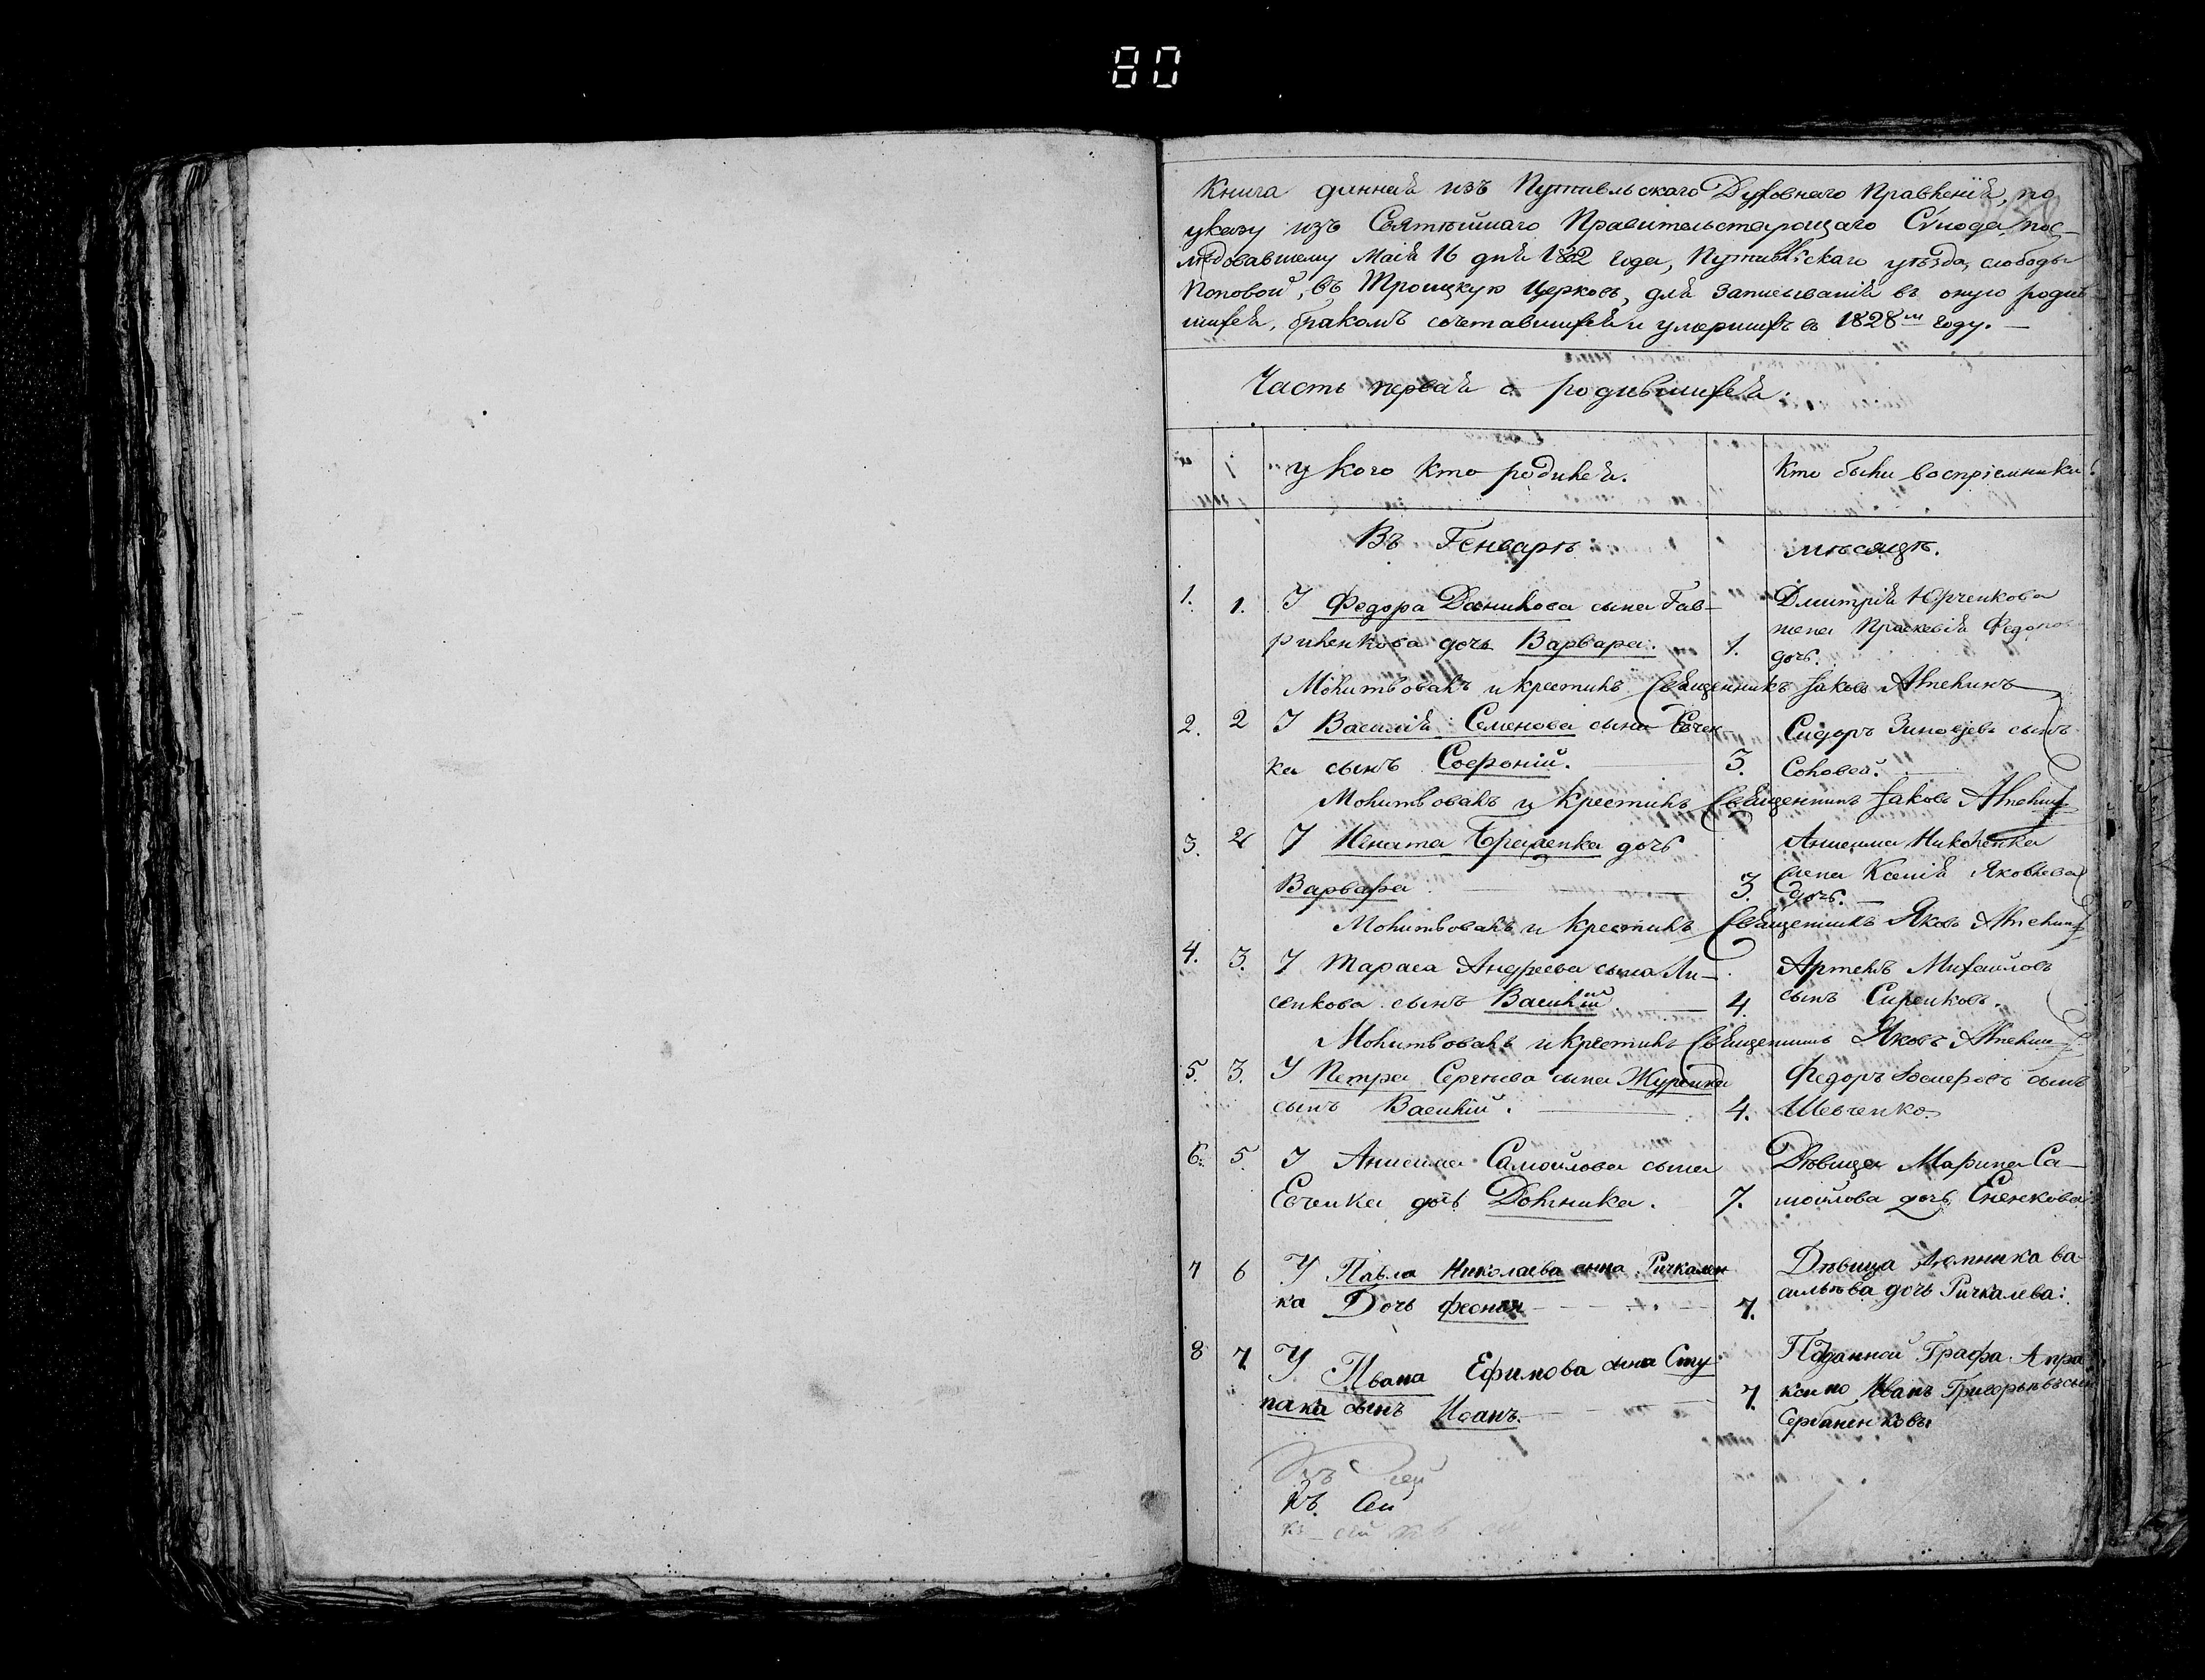 80
Книга данная изъ Путивльскаго Духовнаго Правленія, по
указу изъ Святѣйшаго Правительствующаго Сѵнода пос-
лѣдовавшему Маія 16 дня 1802 года, Путивльскаго уѣзда, слободы
Поповой, въ Троицкую Церковь, для записыванія въ оную родив
шихся, бракомъ сочетавшихся и умершихъ въ 1828м году. —
Часть первая о родившихся.
у кого кто родился.
Кто были воспріемники.
Въ Генварѣ мѣсяцѣ.
1. 1. У Федора Данилова сына Гав-
риленкова дочь Варвара. 1.
Дмитрія Юрченкова
жена Праскевія Федоро
дочь.
Молитвовалъ и крестилъ Священникъ Іаковъ
2. 2 У Василія Семенова сына Евчен
ка сынъ Софроній. 3.
Сидоръ Зиновьевъ сынъ
Соловей.
Молитвовалъ и крестилъ Священникъ Іаковъ
3. 2 У Игната дочь
Варвара 3
Анисима Николенка
жена Ксенія Яковлева
дочь. —
Молитвовалъ и крестилъ Священникъ Яковъ
4. 3. У Тараса Андреева сына Ли-
сенкова сынъ Василій 4.
Артемъ Михайловъ
сынъ Сиренковъ.
Молитвовалъ и крестилъ Священникъ Яковъ
5. 3. У Петра Сергѣева сына Журенка
сынъ Василій. 4.
Федоръ сынъ
Шевченко.
6. 5. У Анисима Самойлова сына
Евченка дочь Домника. 7.
Дѣвица Марина Са-
мойлова дочь Евченкова
7 6 У Павла Николаева сына Ричкален
ка Дочь Феония 7.
Дѣвица Домника ва
сильева дочь Ричкалева:
8 7 У Ивана Ефимова сына Сту
пака сынъ Иоанъ. 7.
Подданной Графа Апра
ксина Иванъ Григорьевъ сын
Сербиненковъ
Къ Сей